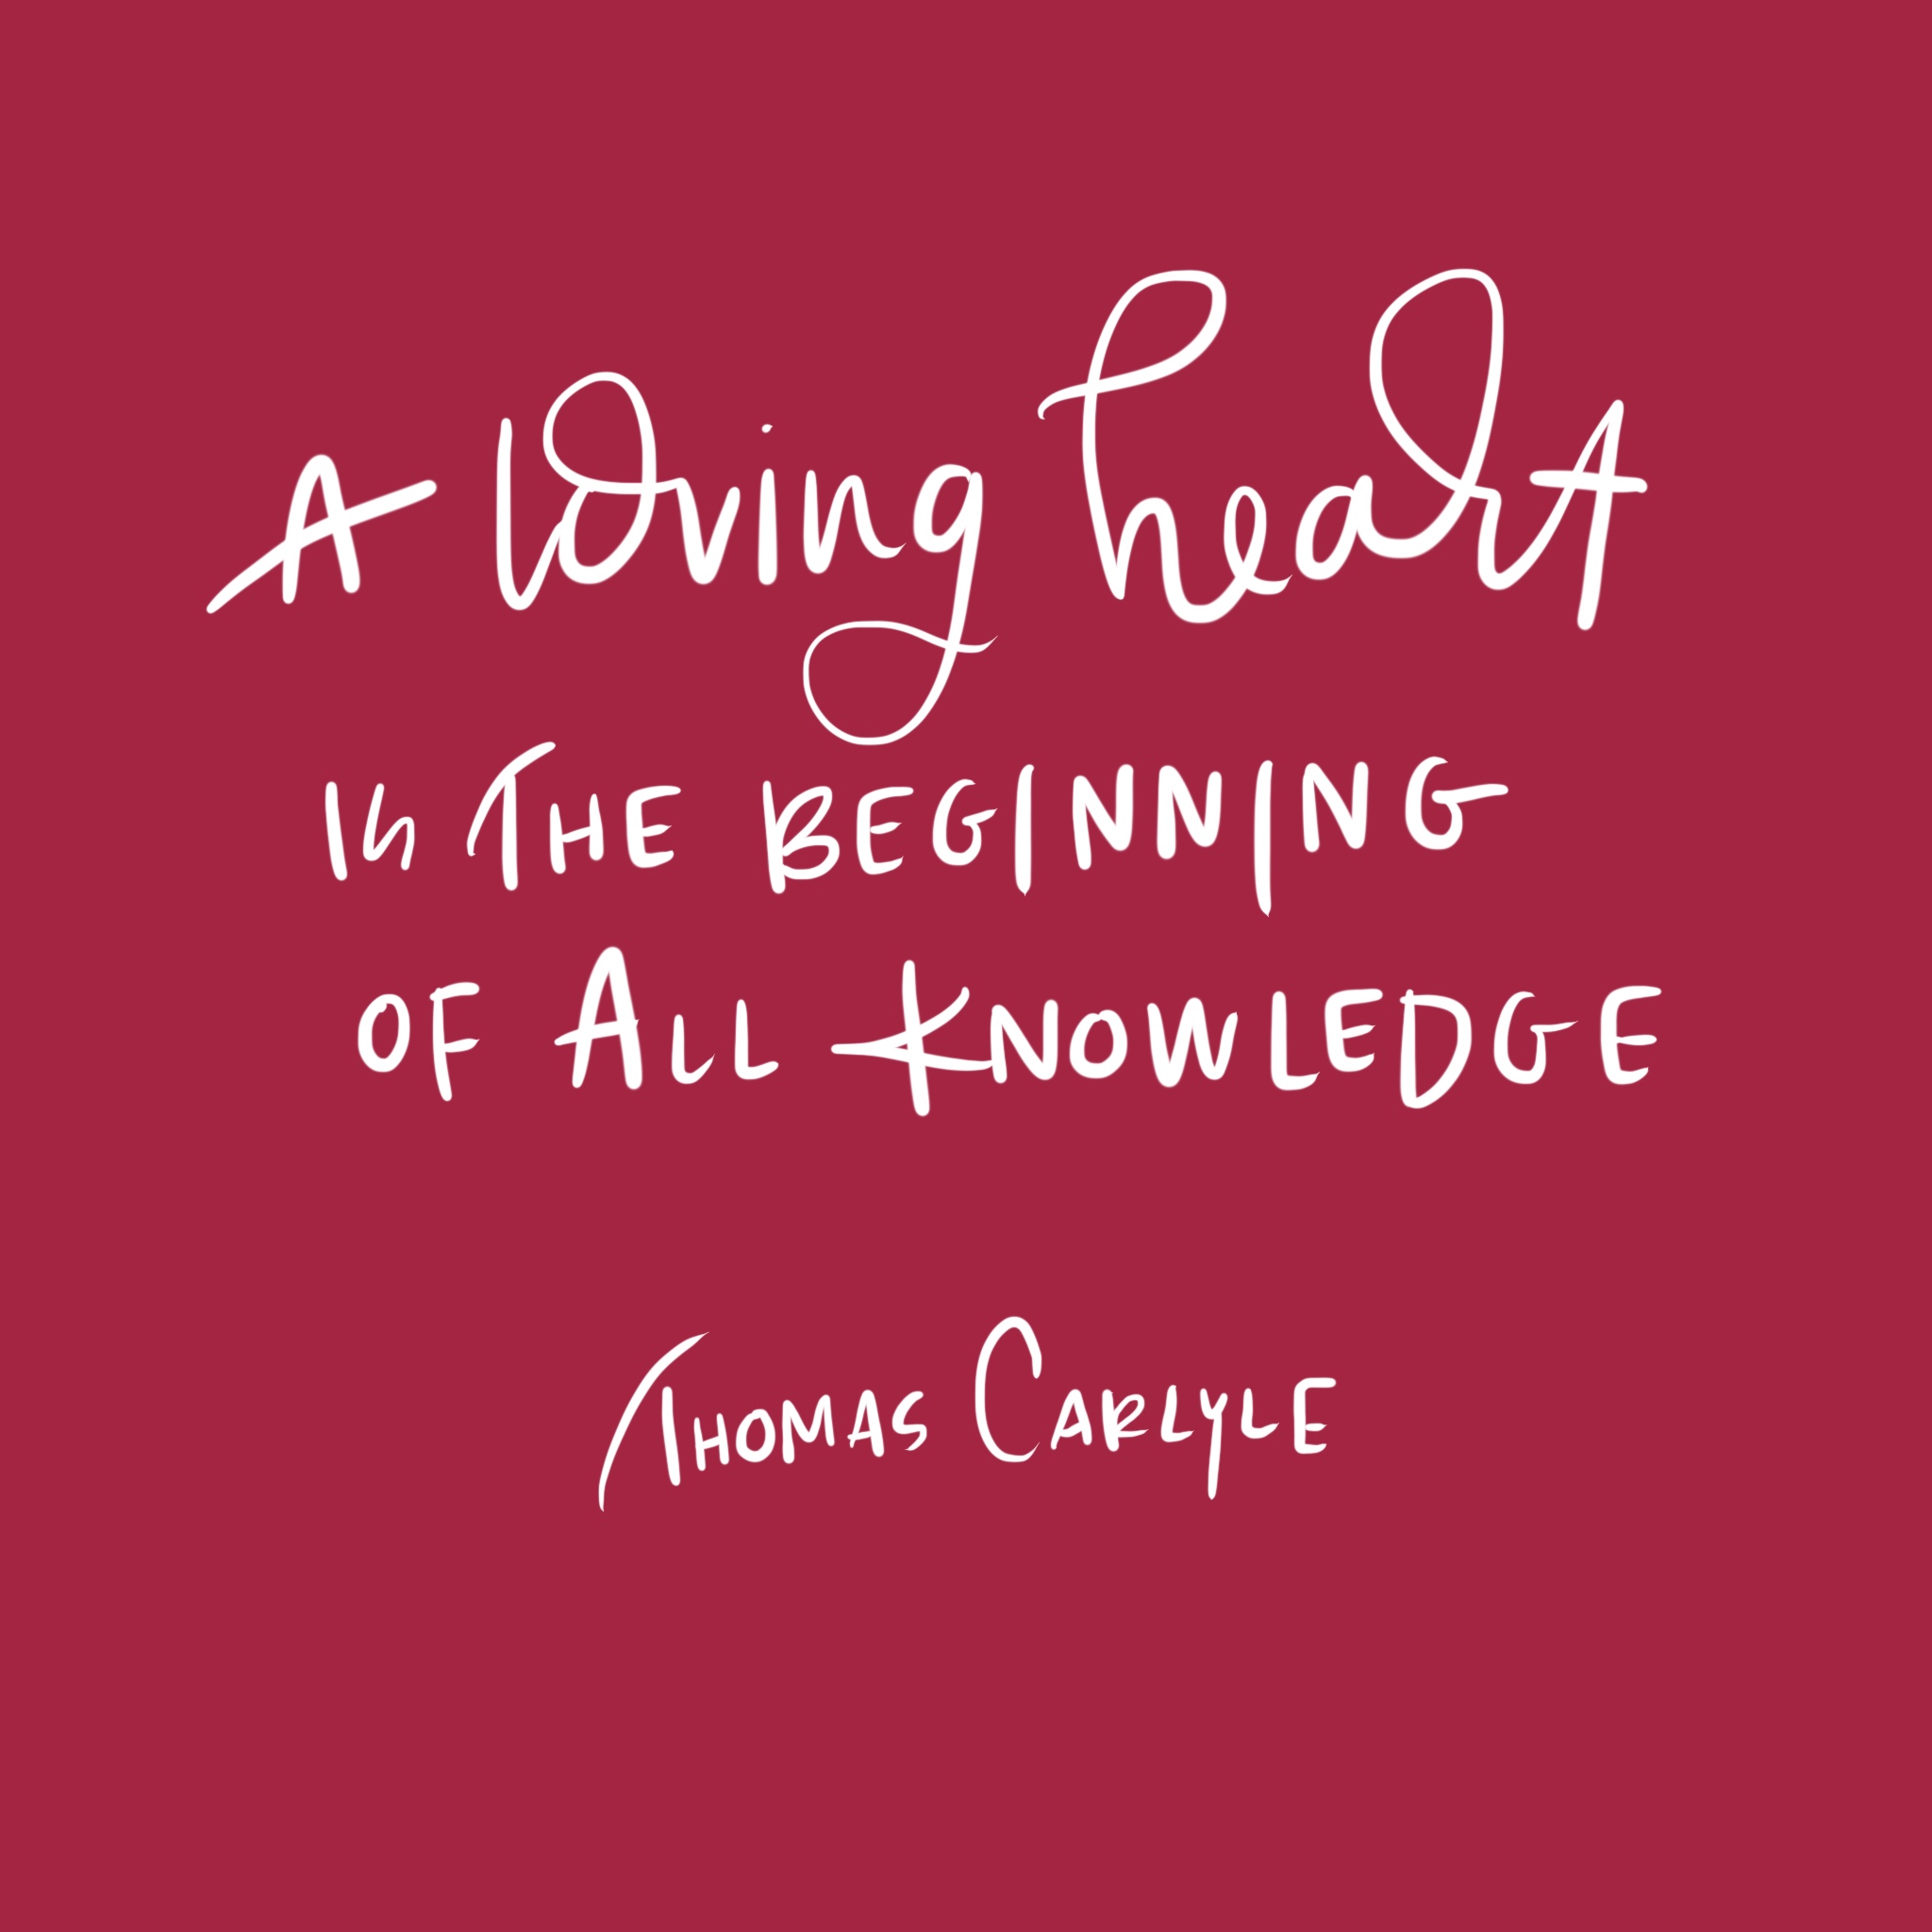 A loving heart
is The Beginning
of All Knowledge
Thomas Carlyle